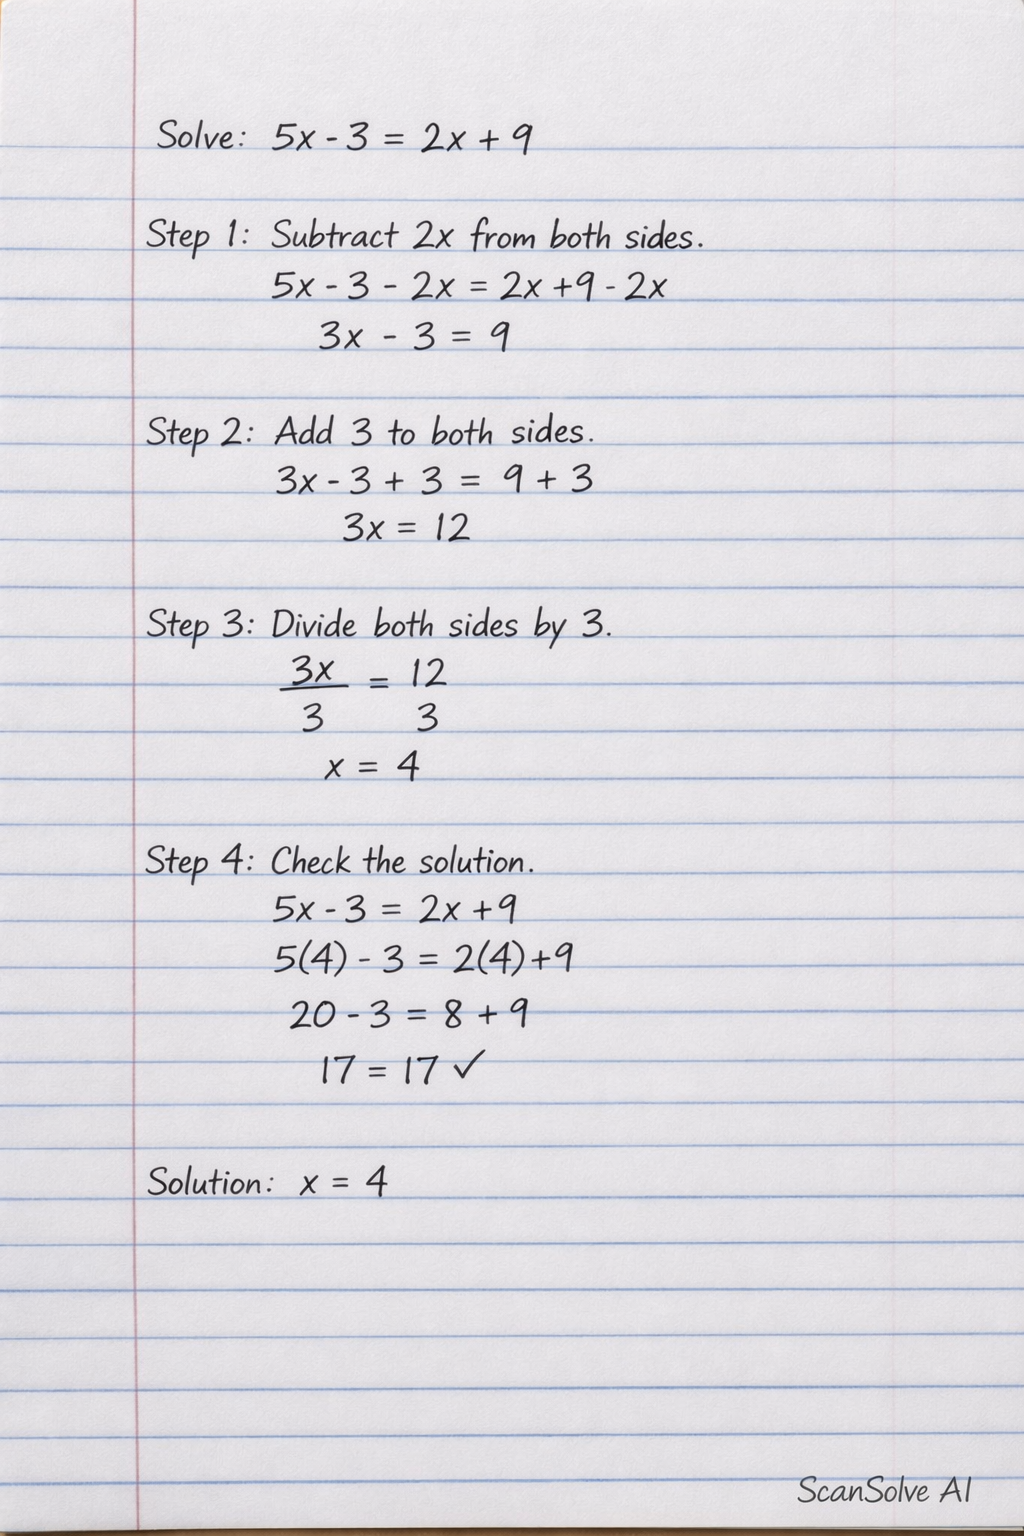 Solve: 5x - 3 = 2x + 9
Step 1: Subtract 2x from both sides.
5x - 3 - 2x = 2x +9 - 2x
3x - 3 = 9
Step 2: Add 3 to both sides.
3x - 3 + 3 = 9 + 3
3x = 12
Step 3: Divide both sides by 3.
3x = 12
3 3
x = 4
Step 4: Check the solution.
5x - 3 = 2x +9
5(4) - 3 = 2(4)+9
20 - 3 = 8 + 9
17 = 17 ✓
Solution: x = 4
ScanSolve AI